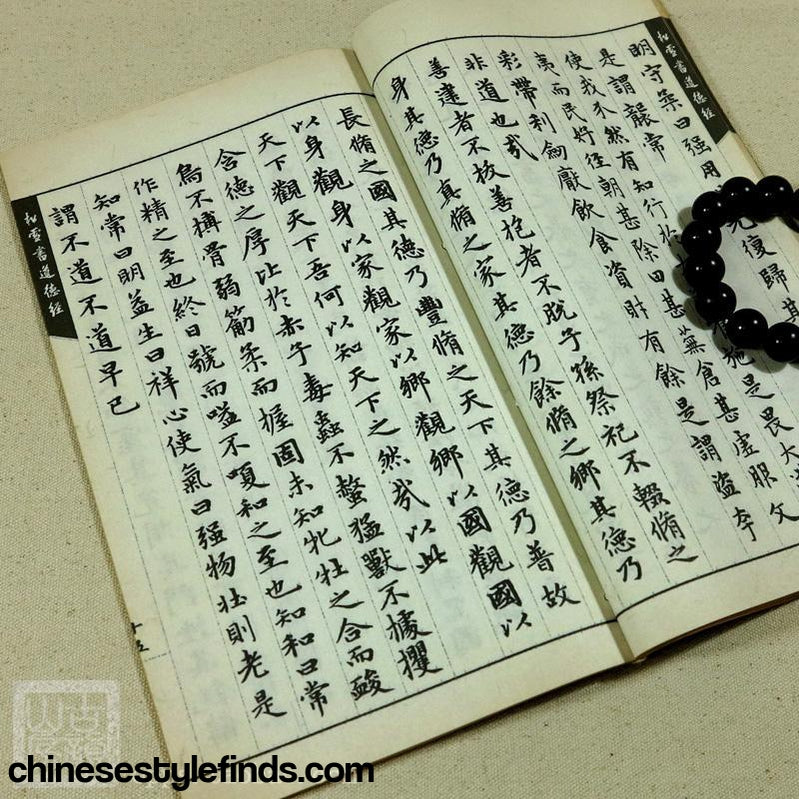 松雪書道德經
明守柔曰强用
光復歸其
是謂襲常
使我介然有知行於
施是畏大
夷而民好徑朝甚除田甚蕪倉甚虛服文
彩帶利劍厭飲食資財有餘是謂盜夸
非道也哉
善建者不拔善抱者不脫子孫祭祀不輟脩之
身其德乃真脩之家其德乃餘脩之鄉其德乃
長脩之國其德乃豐脩之天下其德乃普故
以身觀身以家觀家以鄉觀鄉以國觀國以
天下觀天下吾何以知天下之然哉以此
含德之厚比於赤子毒蟲不螫猛獸不據攫
鳥不搏骨弱筋柔而握固未知牝牡之合而
作精之至也終日號而嗌不嗄和之至也知和曰常
知常曰明益生曰祥心使氣曰强物壯則老是
謂不道不道早已
松雪書道德經
十五
chinesestylefinds.com